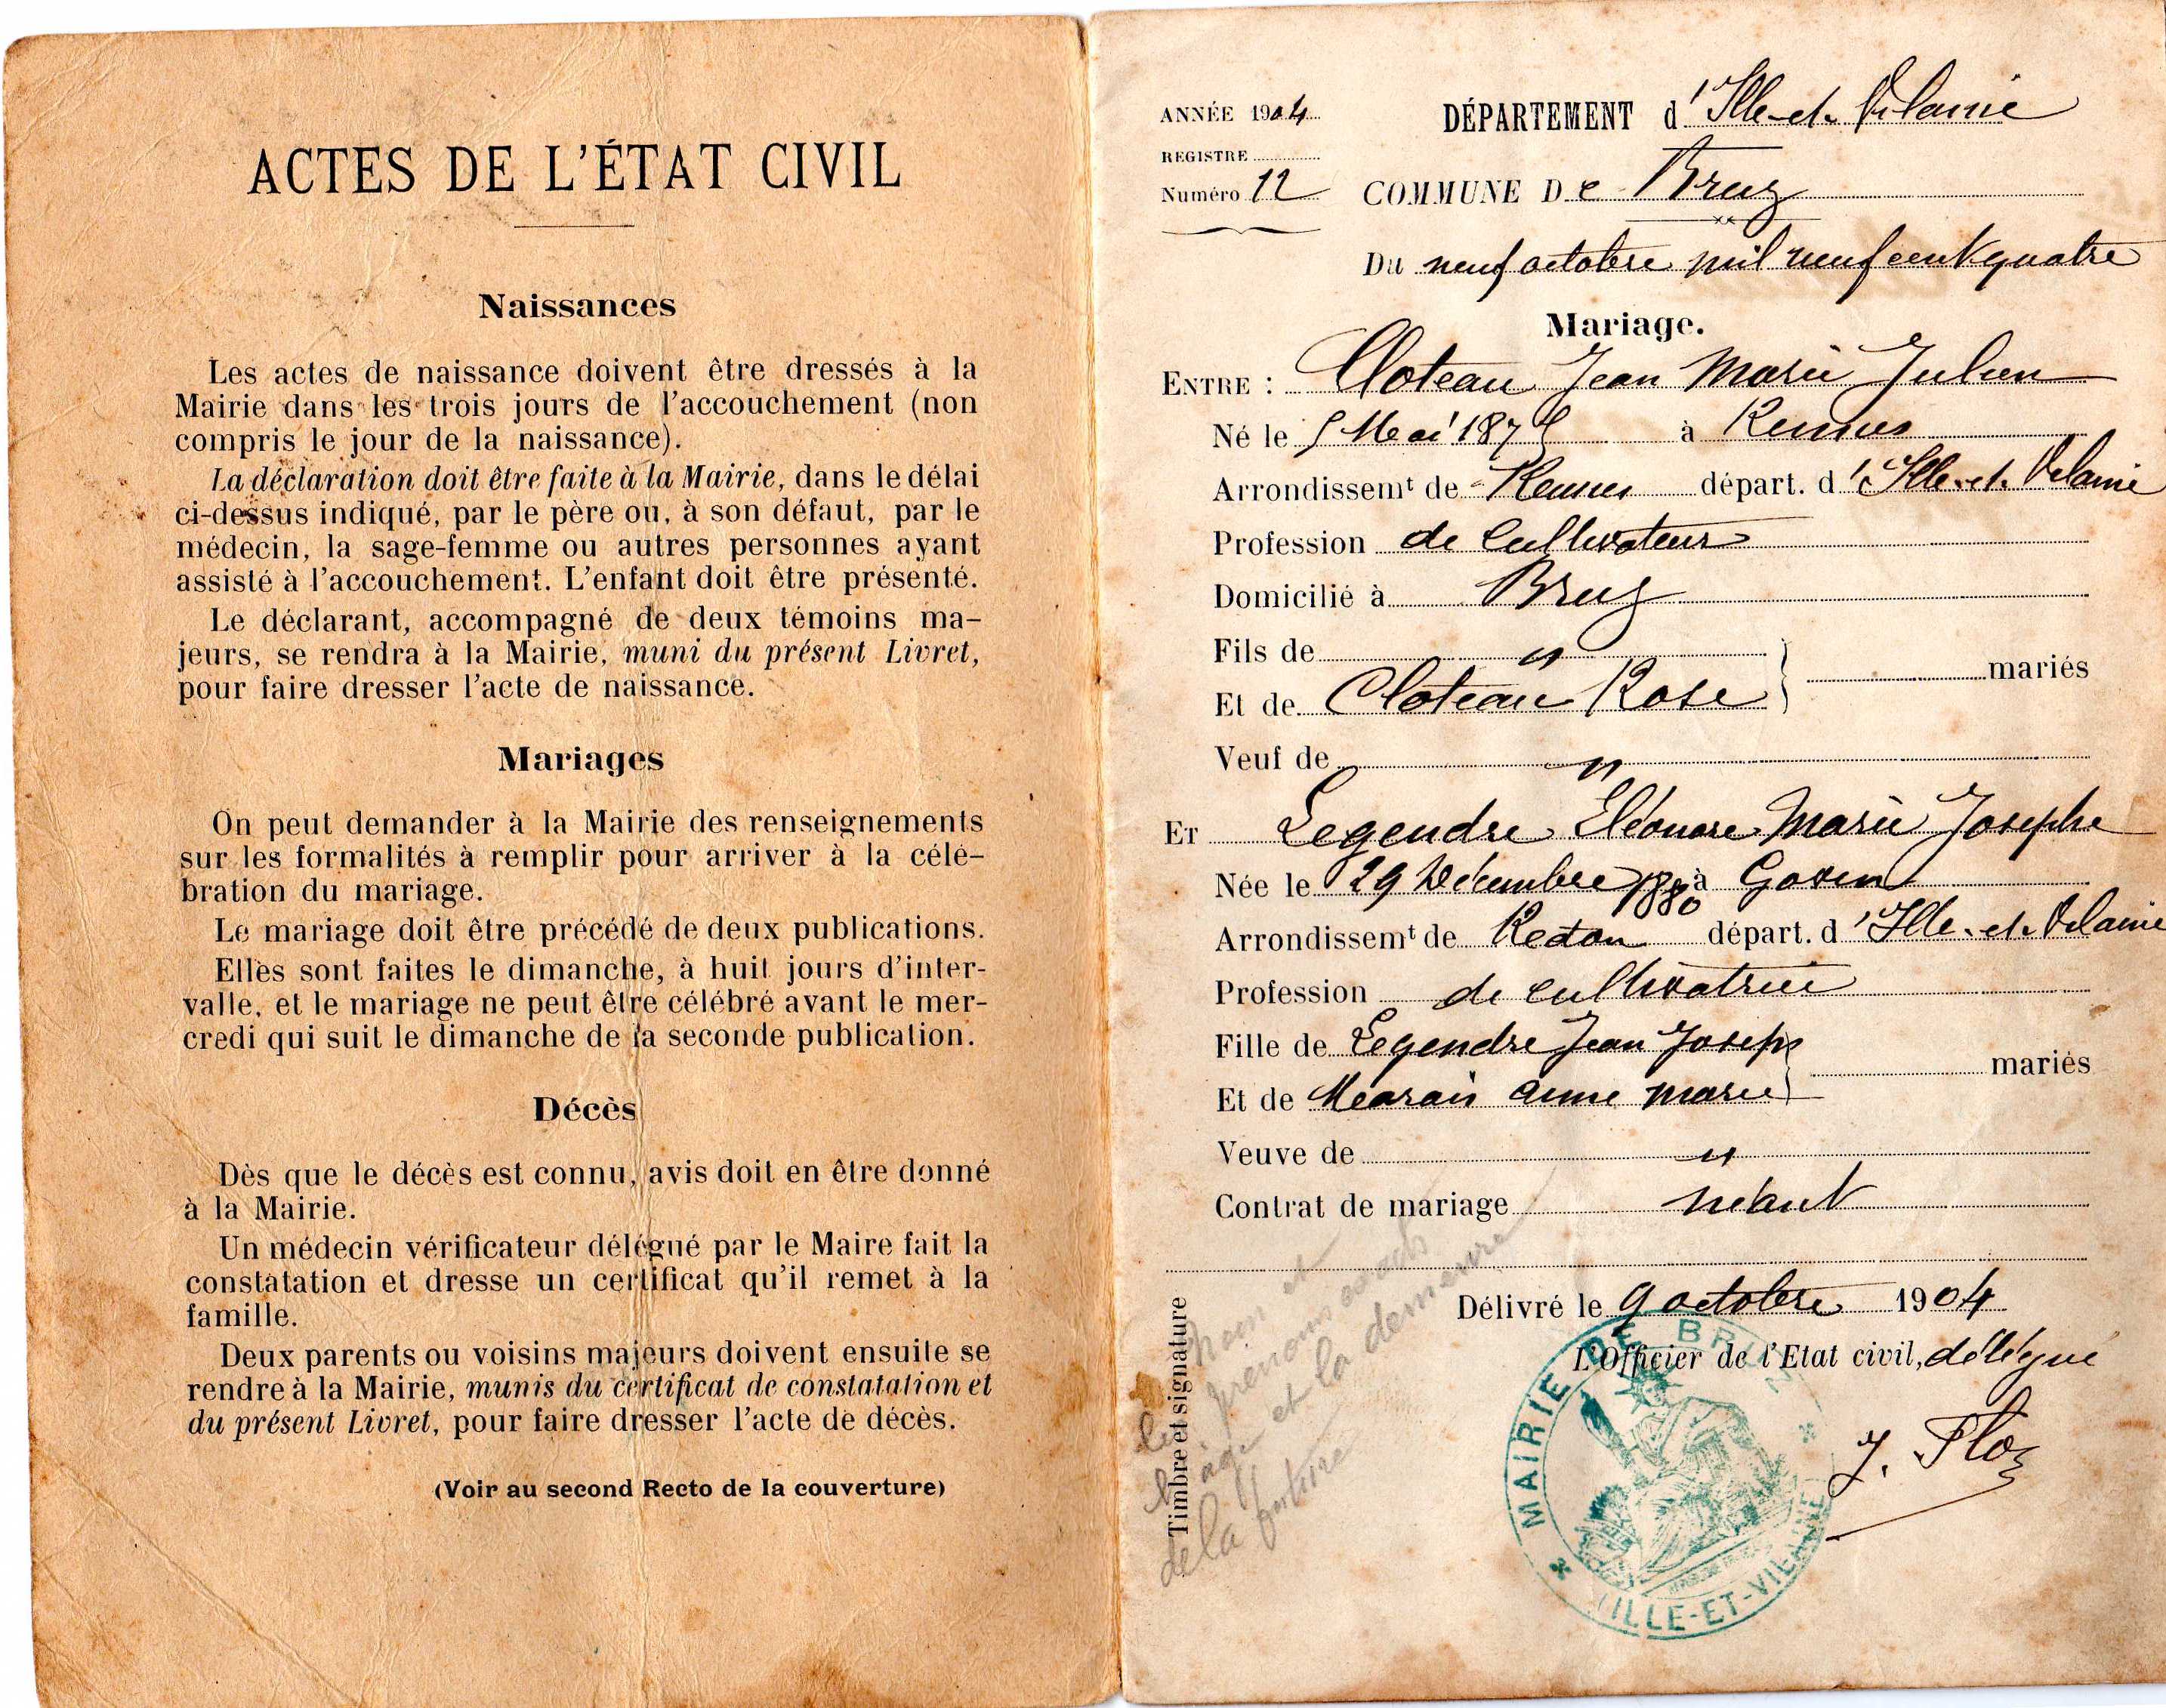 ACTES DE L'ÉTAT CIVIL
Naissances
Les actes de naissance doivent être dressés à la
Mairie dans les trois jours de l'accouchement (non
compris le jour de la naissance).
La déclaration doit être faite à la Mairie, dans le délai
ci-dessus indiqué, par le père ou, à son défaut, par le
médecin, la sage-femme ou autres personnes ayant
assisté à l'accouchement. L'enfant doit être présenté.
Le déclarant, accompagné de deux témoins ma-
jeurs, se rendra à la Mairie, muni du présent Livret,
pour faire dresser l'acte de naissance.
Mariages
On peut demander à la Mairie des renseignements
sur les formalités à remplir pour arriver à la célé-
bration du mariage.
Le mariage doit être précédé de deux publications.
Elles sont faites le dimanche, à huit jours d'inter-
valle, et le mariage ne peut être célébré avant le mer-
credi qui suit le dimanche de la seconde publication.
Décès
Dès que le décès est connu, avis doit en être donné
à la Mairie.
Un médecin vérificateur délégué par le Maire fait la
constatation et dresse un certificat qu'il remet à la
famille.
Deux parents ou voisins majeurs doivent ensuite se
rendre à la Mairie, munis du certificat de constatation et
du présent Livret, pour faire dresser l'acte de décès.
(Voir au second Recto de la couverture)
ANNÉE 1904
DÉPARTEMENT d'Ille-et-Vilaine
REGISTRE
Numéro 12
COMMUNE De Bruz
Du neuf octobre mil neuf cent quatre
Mariage.
ENTRE : Cloteau Jean Marie Julien
Né le 5 Mai 187 à Rennes
Arrondissemt de Rennes départ. d'Ille-et-Vilaine
Profession de cultivateur
Domicilié à Bruz
Fils de "
Et de Cloteau Rose
mariés
Veuf de "
ET Legendre Eléonore Marie Josephe
Née le 29 Décembre 1880 à Goven
Arrondissemt de Redon départ. d'Ille-et-Vilaine
Profession de cultivatrice
Fille de Legendre Jean Joseph
Et de Anne Marie
mariés
Veuve de "
Contrat de mariage néant
Délivré le 9 octobre 1904
L'Officier de l'Etat civil, délégué
J. 
Timbre et signature
et
prenoms
age et la demeure
de la
MAIRIE DE BRUZ
ILLE-ET-VILAINE